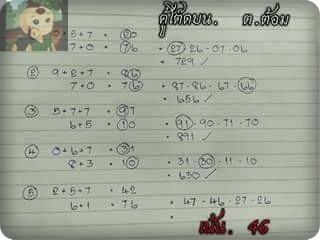 คู่โต๊ดบน. ต.ต้อม
0+5+7 = 20
7+0 = 76 = 27·26·07·06
= 729 /
② 9+2+7 = 86
7+0 = 76 = 87·86·67·66
= 656 /
③ 5+7+7 = 97
6+5 = 10 = 91·90·71·70
= 891 /
④ 0+6+7 = 31
8+3 = 10 = 31·30·11·10
= 630 /
⑤ 2+5+7 = 42
6+1 = 76 = 47·46·27·26
เน้น. 46